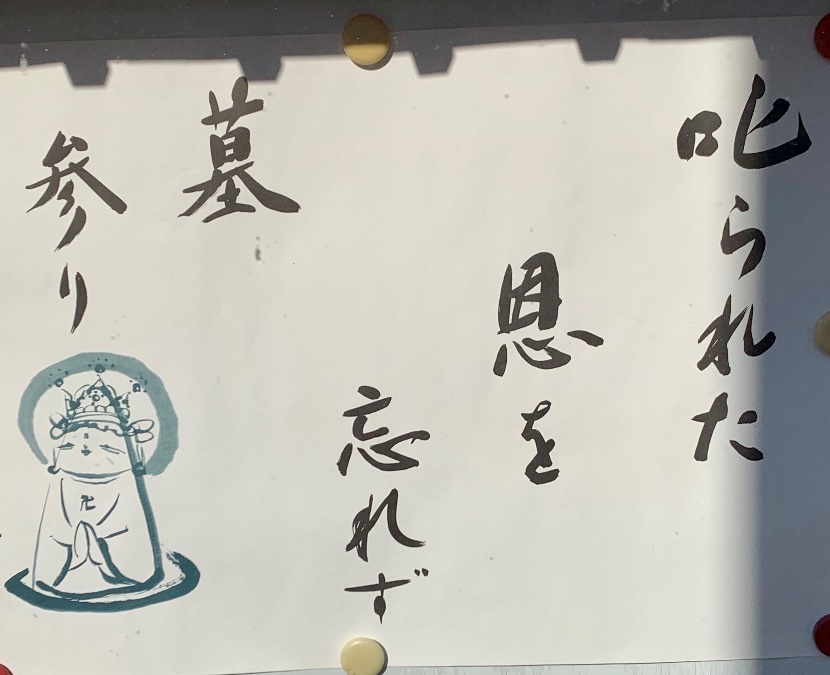 叱られた
恩を
忘れず
墓
参り
卍